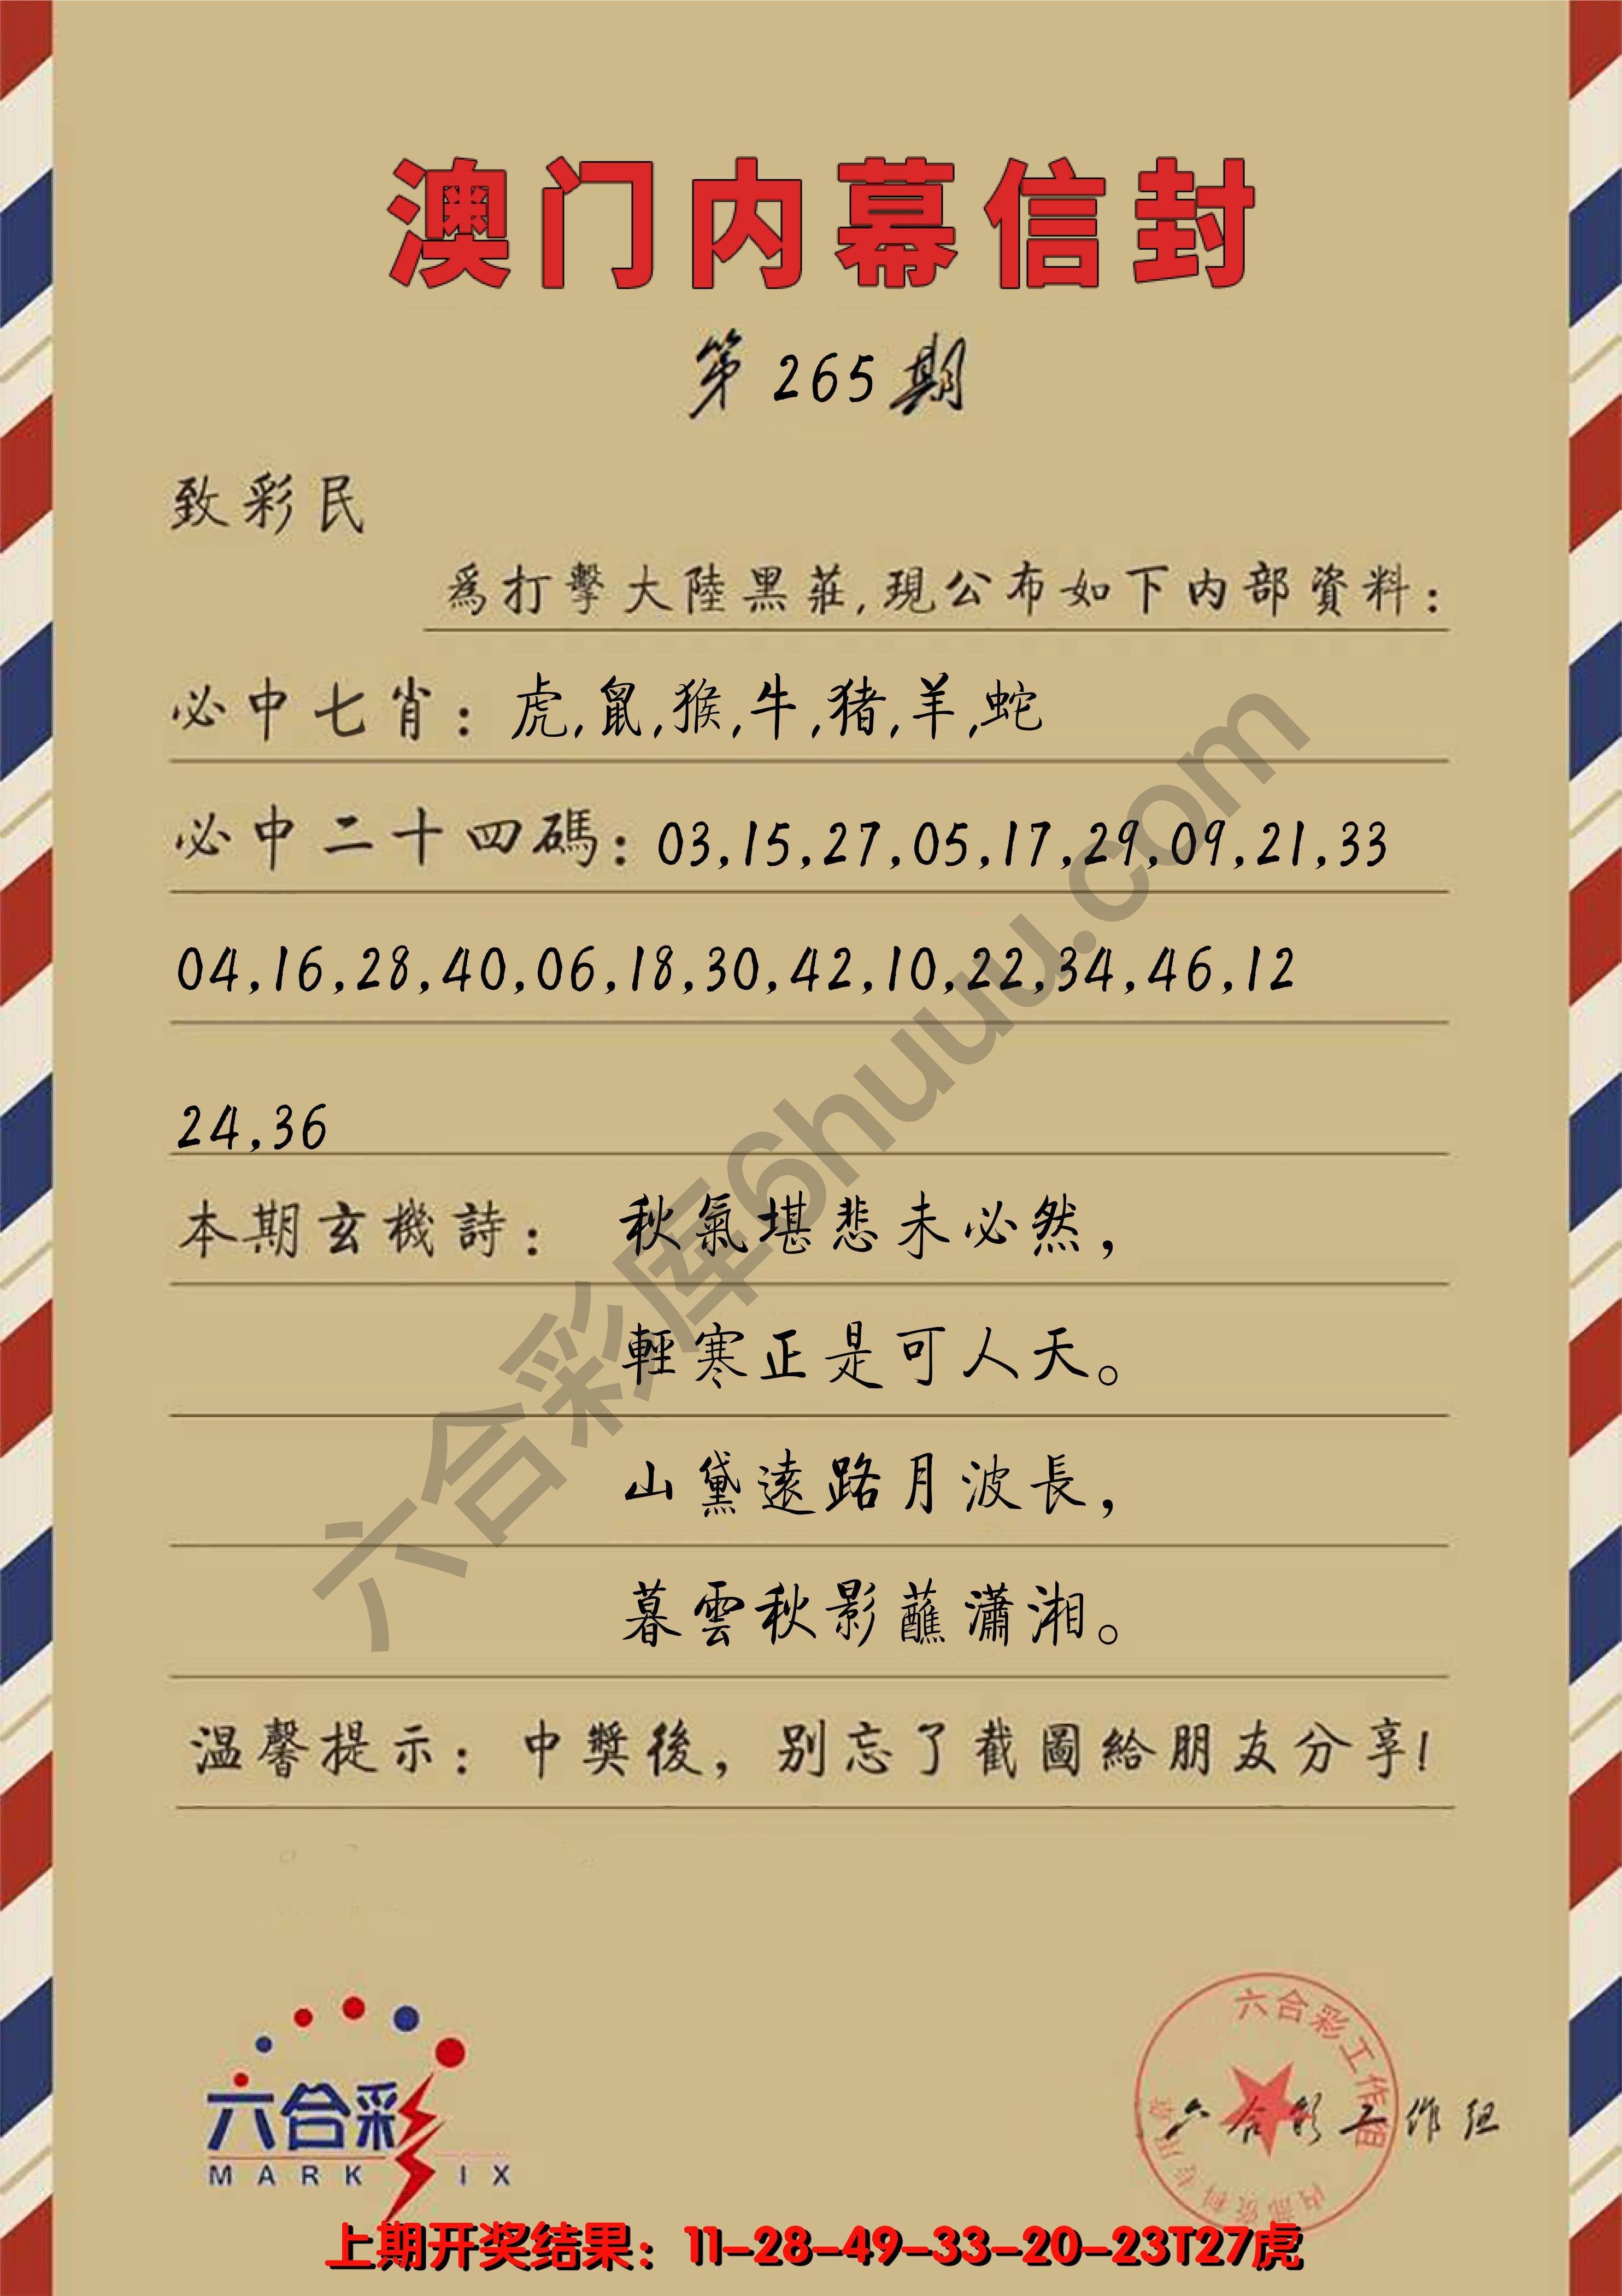 澳门内幕信封
第265期
致彩民
爲打擊大陸黑莊,現公布如下内部資料:
必中七肖: 虎,鼠,猴,牛,猪,羊,蛇
必中二十四碼: 03,15,27,05,17,29,09,21,33
04,16,28,40,06,18,30,42,10,22,34,46,12
24,36
本期玄機詩: 秋氣堪悲未必然,
輕寒正是可人天。
山黛遠路月波長,
暮雲秋影蘸瀟湘。
温馨提示: 中獎後, 别忘了截圖給朋友分享!
六合彩库6huuu.com
六合彩
MARK IX
六合彩工作组
内部资料专用章
六合彩工作组
上期开奖结果: 11-28-49-33-20-23T27虎